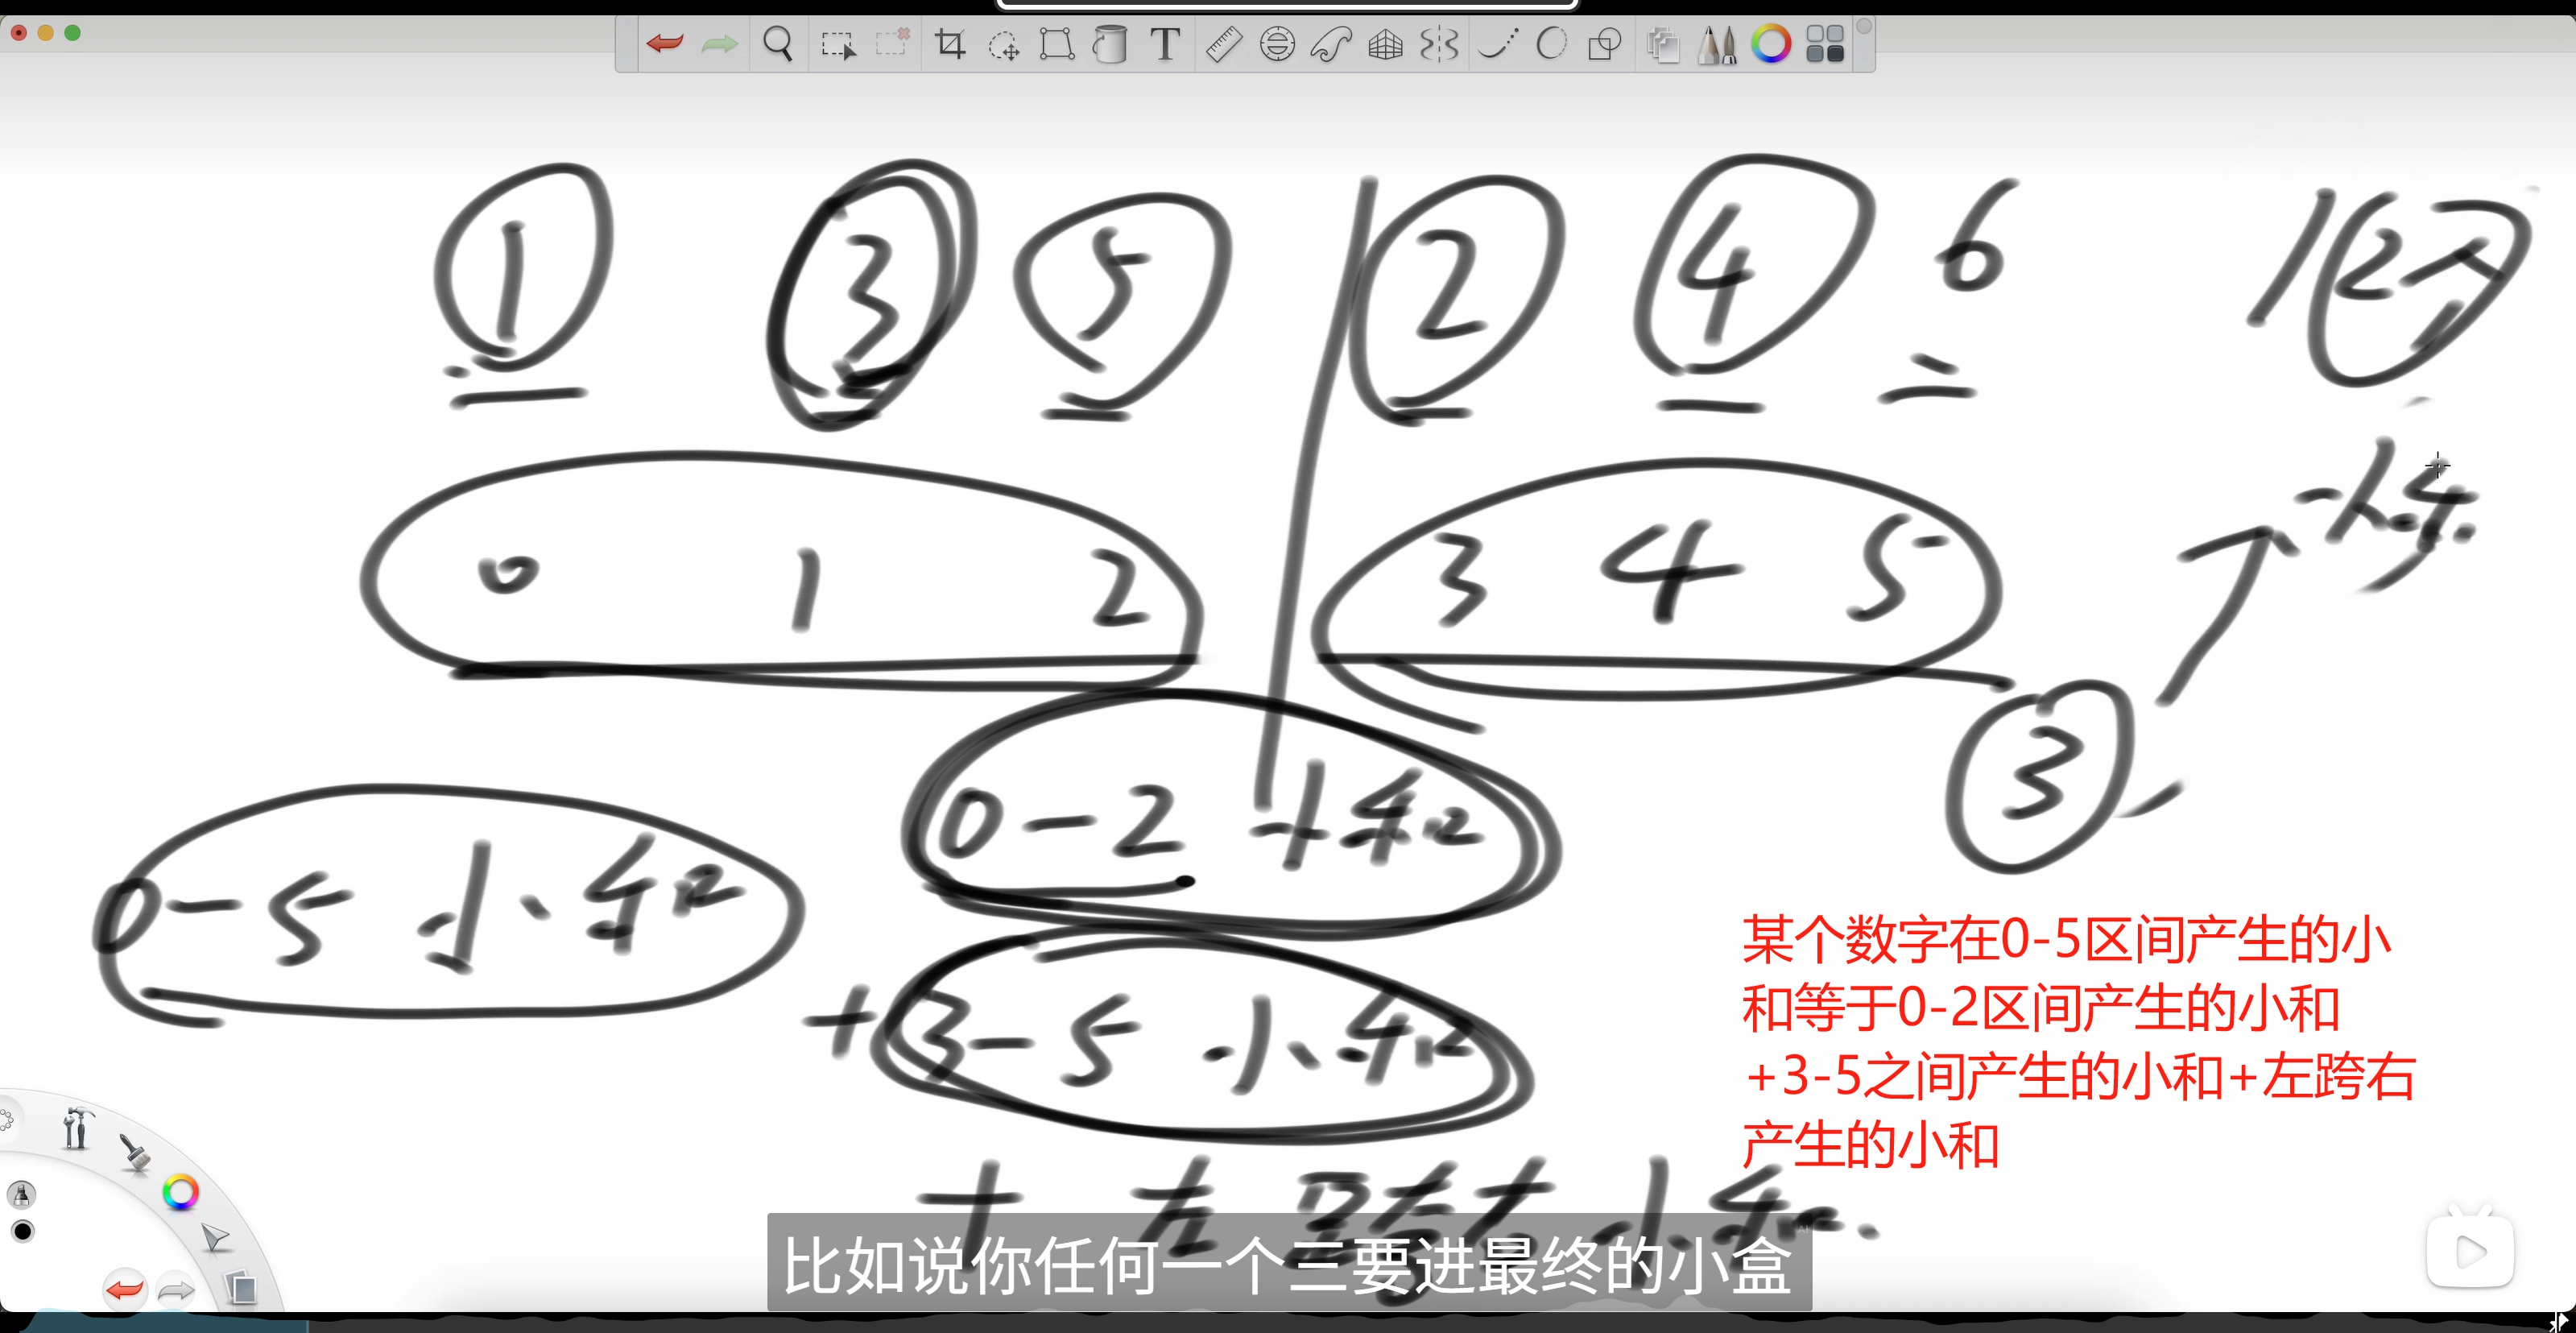 T
1 3 5 2 4 6
0 1 2 3 4 5
3
0-2 小和
0-5 小和
+3-5 小和
+左跨右小和
某个数字在0-5区间产生的小
和等于0-2区间产生的小和
+3-5之间产生的小和+左跨右
产生的小和
比如说你任何一个三要进最终的小盒